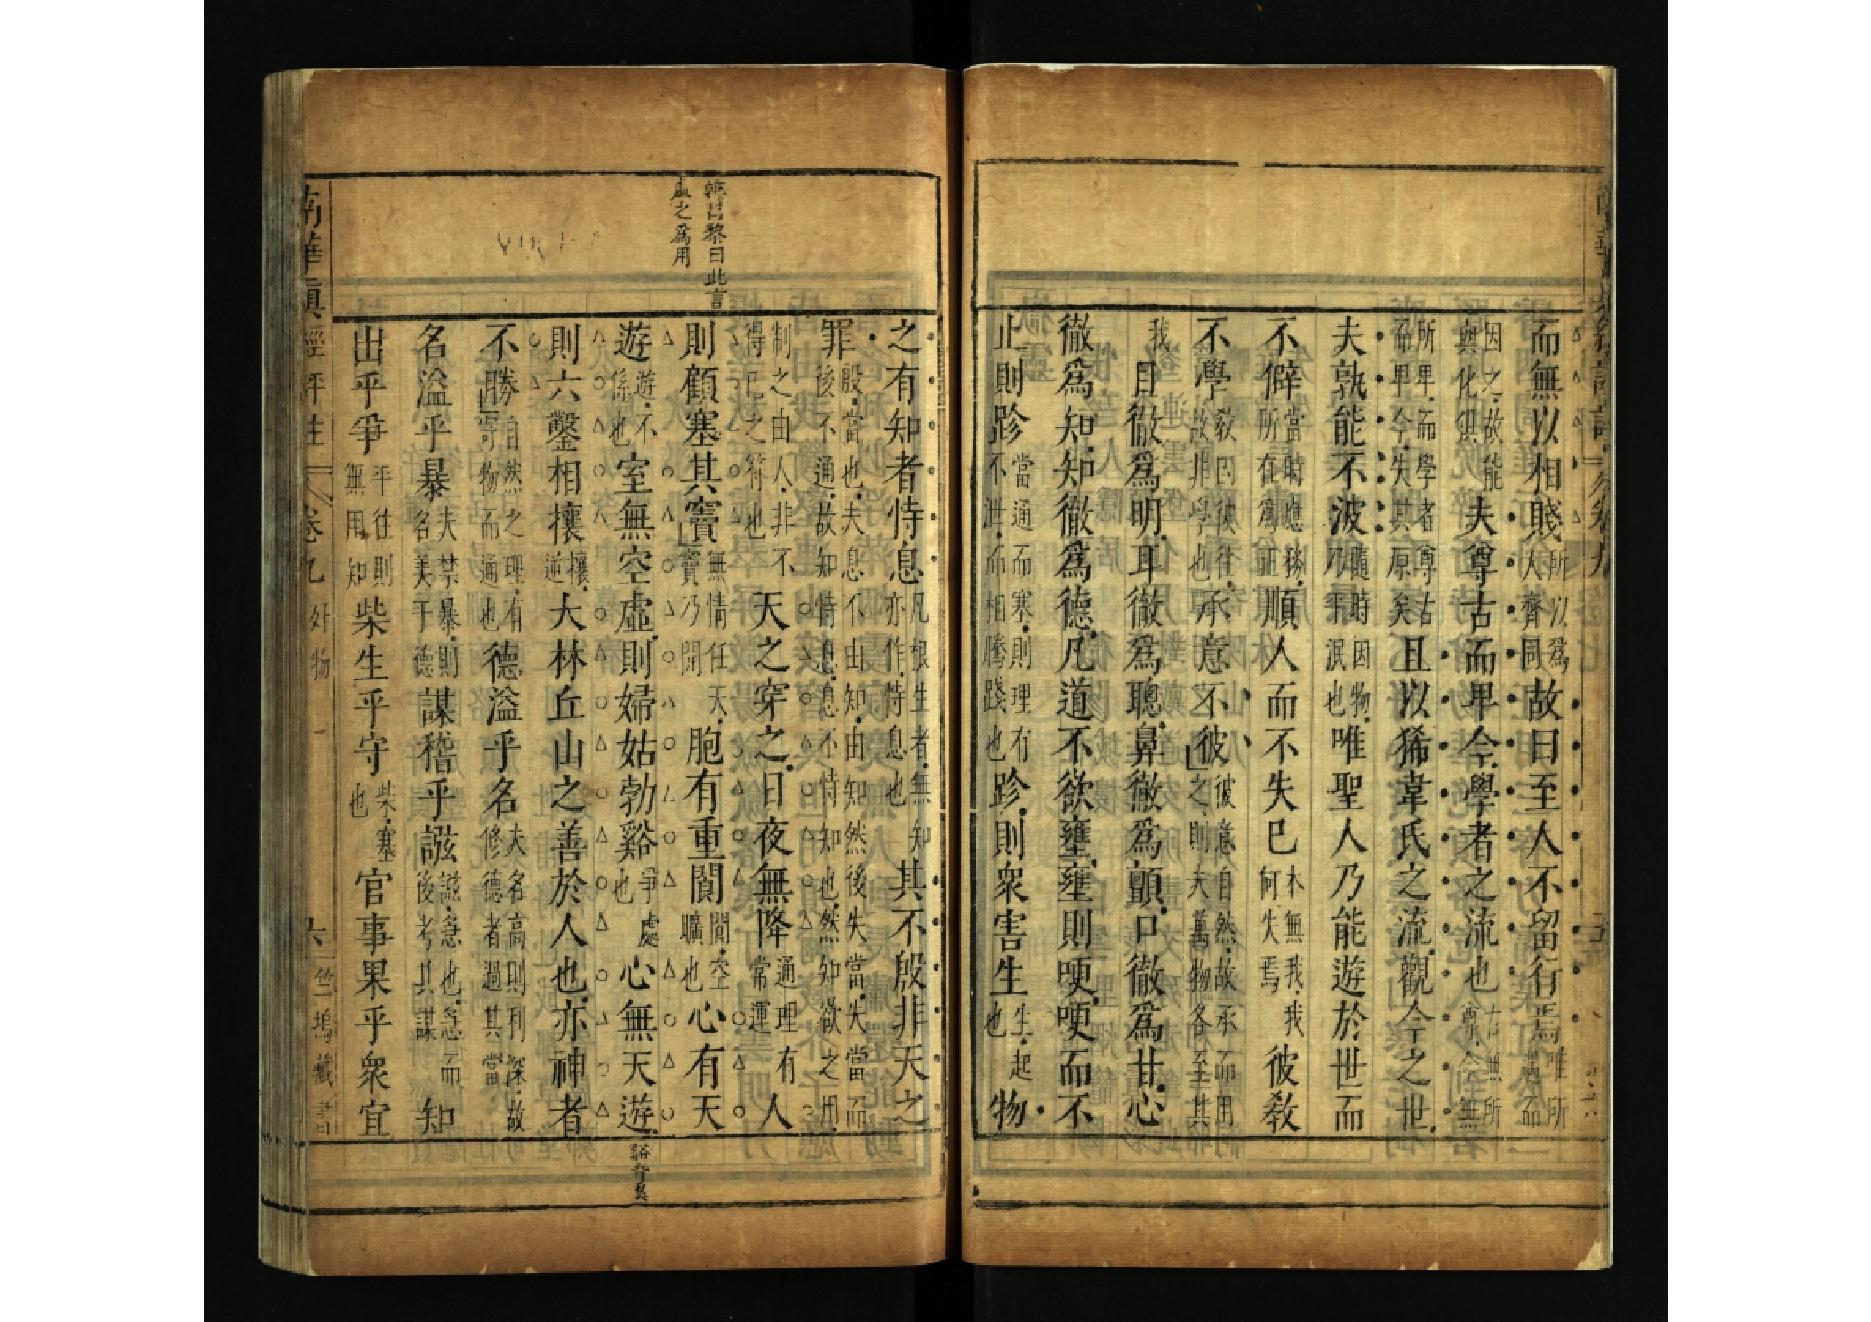 而無以相賤所以爲人齊同故曰至人不留行焉唯所遇而
因之故能與化俱夫尊古而卑今學者之流也古無所尊今無
所卑而學者尊古而卑今失其原矣且以狶韋氏之流觀今之世
夫孰能不波隨時因物乃平泯也唯聖人乃能遊於世而
不僻當時應務所在爲正順人而不失己本無我我何失焉彼教
不學教因彼性故非學也承意不彼彼意自然故承而用之則夫萬物各至其
我目徹爲明耳徹爲聰鼻徹爲顫口徹爲甘心
徹爲知知徹爲德凡道不欲壅壅則哽哽而不
止則跈當通而塞則理有不泄而相騰踐也跈則衆害生生起也物
之有知者恃息凡根生者無知亦不恃息也其不殷非天之
罪殷當也夫息不由知由知然後失當失當而後不通故知恃息息不恃知也然知欲之用
制之由人非不得已之符也天之穿之日夜無降通理有常運人
則顧塞其竇無情任天竇乃開胞有重閬閬空曠也心有天
遊遊不係也室無空虛則婦姑勃谿爭處也心無天遊
則六鑿相攘攘逆大林丘山之善於人也亦神者
不勝自然之理有寄物而通也德溢乎名夫名高則利深故修德者過其當
名溢乎暴夫禁暴則名美于德謀稽乎誸誸急也急而後考其謀知
出乎爭平往則無用知柴生乎守柴塞也官事果乎衆宜
韓昌黎曰此言
虛之爲用
谿音奚
南華眞經評註
卷九
外物
六
竺塢藏書